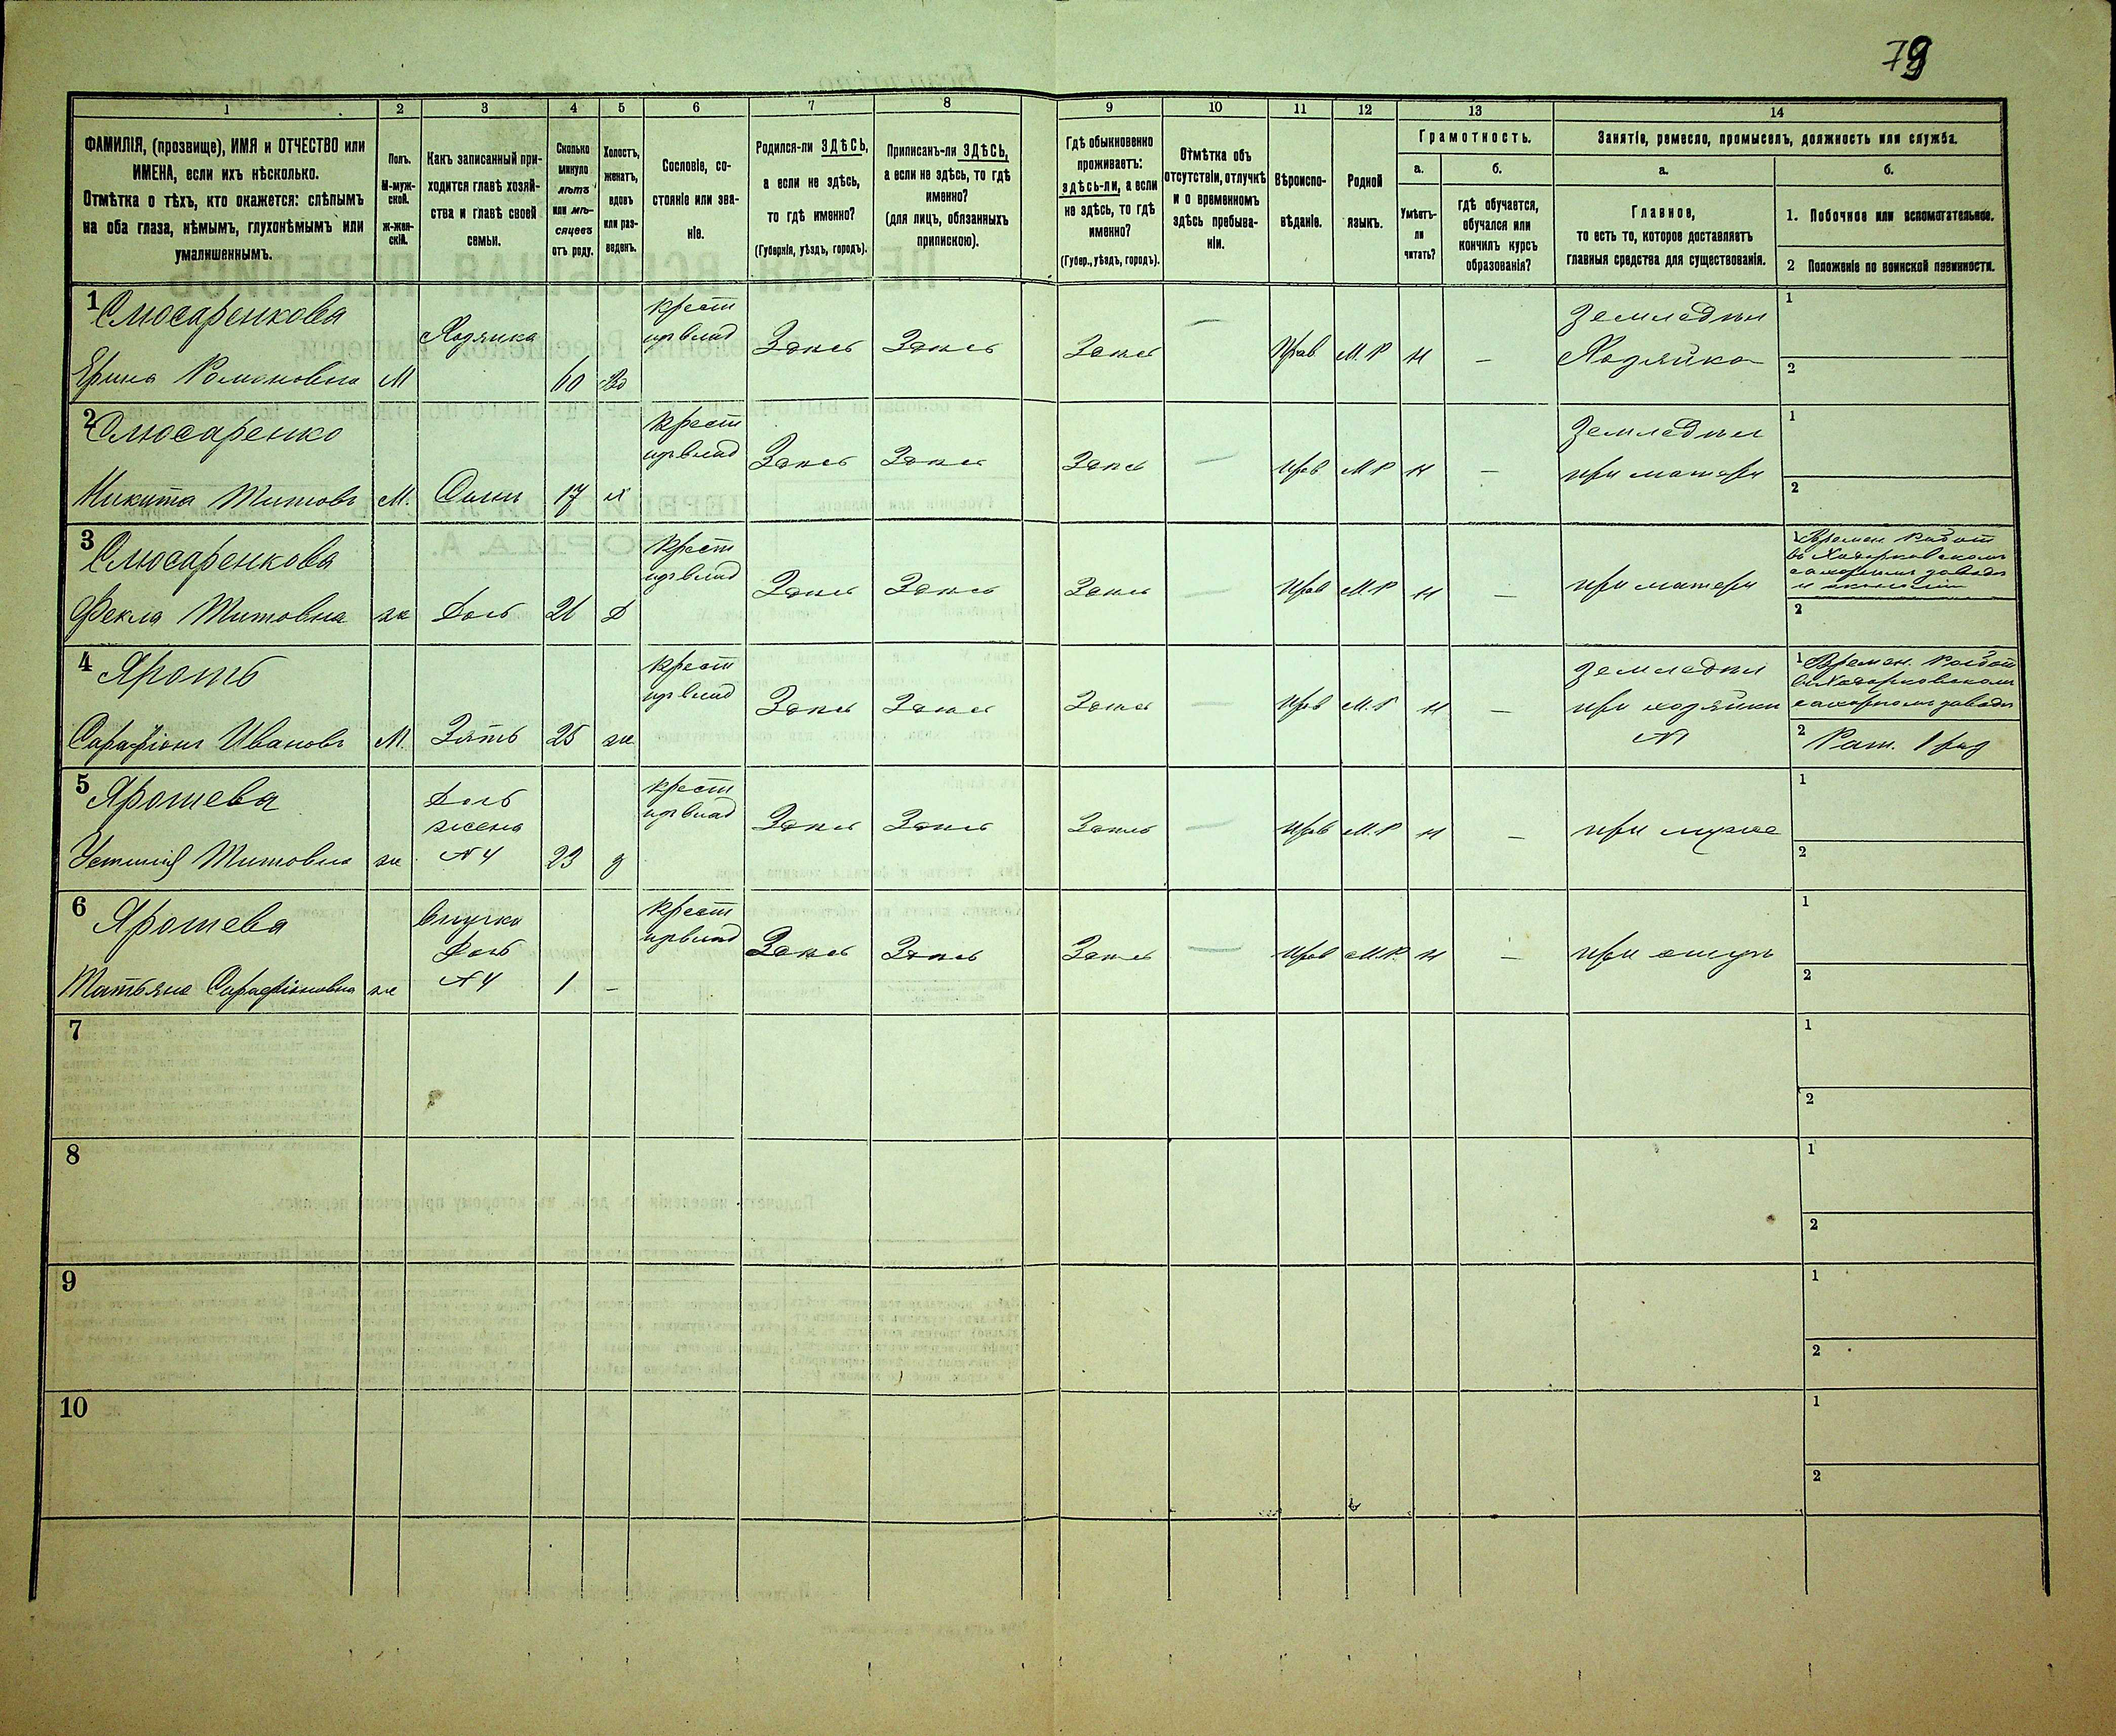 79
1 2 3 4 5 6 7 8 9 10 11 12 13 14
ФАМИЛІЯ, (прозвище), ИМЯ и ОТЧЕСТВО или
ИМЕНА, если ихъ нѣсколько.
Отмѣтка о тѣхъ, кто окажется: слѣпымъ
на оба глаза, нѣмымъ, глухонѣмымъ или
умалишеннымъ.
Полъ.
М-муж-
ской.
ж-жен-
скій.
Какъ записанный при-
ходится главѣ хозяй-
ства и главѣ своей
семьи.
Сколько
минуло
лѣтъ
или мѣ-
сяцевъ
отъ роду.
Холостъ,
женатъ,
вдовъ
или раз-
веденъ.
Сословіе, со-
стояніе или зва-
ніе.
Родился-ли ЗДѢСЬ,
а если не здѣсь,
то гдѣ именно?
(Губернія, уѣздъ, городъ).
Приписанъ-ли ЗДѢСЬ,
а если не здѣсь, то гдѣ
именно?
(для лицъ, обязанныхъ
припискою).
Гдѣ обыкновенно
проживаетъ:
здѣсь-ли, а если
не здѣсь, то гдѣ
именно?
(Губер., уѣздъ, городъ).
Отмѣтка объ
отсутствіи, отлучкѣ
и о временномъ
здѣсь пребыва-
ніи.
Вѣроиспо-
вѣданіе.
Родной
языкъ.
Грамотность.
а.
Умѣетъ-
ли
читать?
б.
гдѣ обучается,
обучался или
кончилъ курсъ
образованія?
Занятіе, ремесло, промыселъ, должность или служба.
а.
Главное,
то есть то, которое доставляетъ
главныя средства для существованія.
б.
1. Побочное или вспомогательное.
2 Положеніе по воинской повинности.
1 Слюсаренкова
Ерина Романовна М Хозяика 60 Вд
крест
изъ влад
Здѣсь Здѣсь Здѣсь — Прав М.Р Н —
Земледѣл
Хозяйка
1
2
2 Слюсаренко
Никита Титовъ М. Сынъ 17 х
крест
изъ влад
Здѣсь Здѣсь Здѣсь — Прав М Р Н —
Земледѣл
при матери
1
2
3 Слюсаренкова
Фекла Титовна ж Дочь 21 д
крест
изъ влад
Здѣсь Здѣсь Здѣсь — Прав М.Р Н —
при матери
1 Времен. Работ
въ Ходорковскомъ
сахарномъ заводѣ
2
4 Ярошъ
Сарафіонъ Ивановъ М. Зять 25 ж
крест
изъ влад
Здѣсь Здѣсь Здѣсь — Прав М.Р Н —
Земледѣл
при хозяйки
№1
1 Времен. Работ
въ Ходорковскомъ
сахарномъ заводѣ
2 Рат. 1 раз
5 Ярошева
Устинія Титовна ж
Дочь
жена
№ 4
23 з
крест
изъ влад
Здѣсь Здѣсь Здѣсь — Прав М.Р Н —
при мужѣ
1
2
6 Ярошева
Татьяна Сарафіоновна ж
Внучка
Дочь
№ 4
1 —
крест
изъ влад
Здѣсь Здѣсь Здѣсь — Прав М.Р. Н —
при отцѣ
1
2
7
1
2
8
1
2
9
1
2
10
1
2